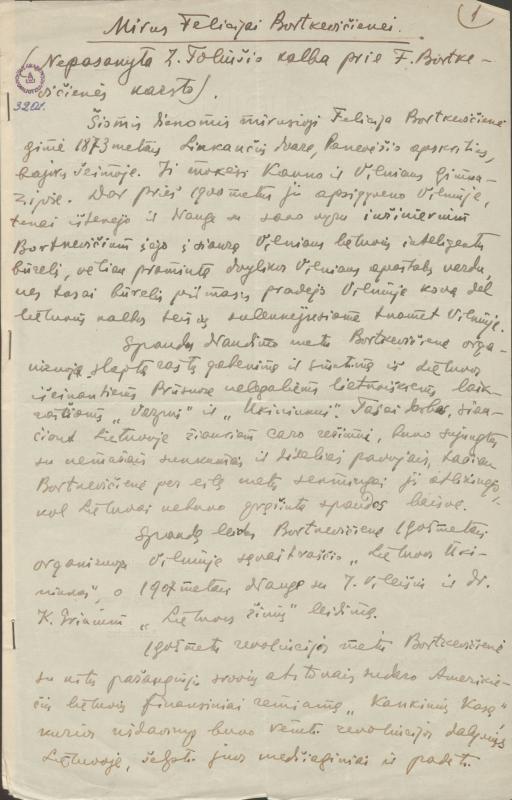 1
Mirus Felicijai Bortkevičienei.
(Nepasakyta Z. Toliušio kalba prie F. Bortke-
vičienės karsto).
3201.
Šiomis dienomis mirusioji Felicija Bortkevičienė
gimė 1873 metais Linkaučių dvare, Panevėžio apskrities,
bajorų šeimoje. Ji mokėsi Kauno ir Vilniaus gimna-
zijose. Dar prieš 1900 metus ji apsigyveno Vilniuje,
tenai ištekėjo ir drauge su savo vyru inžinierium
Bortkevičium įėjo į siaurą Vilniaus lietuvių inteligentų
būrelį, vėliau pramintą dvylikos Vilniaus apaštalų vardu,
nes tasai būrelis pirmasis pradėjo Vilniuje kovą dėl
lietuvių kalbos teisių sulenkėjusiame tuomet Vilniuje.
Spaudos draudimo metu Bortkevičienė orga-
nizuoja slaptą raštų gabenimą ir siuntimą iš Lietuvos
išeinantiems Prūsuose nelegaliems lietuviškiems laik-
raščiams „Varpui" ir „Ūkininkui". Tasai darbas, siau-
čiant Lietuvoje žiauriam caro režimui, buvo sujungtas
su nemažais sunkumais ir dideliais pavojais, tačiau
Bortkevičienė per eilę metų sėkmingai jį atlikinėjo,
kol Lietuvai nebuvo grąžinta spaudos laisvė.
Spaudą leidus Bortkevičienė 1905 metais
organizuoja Vilniuje savaitraščio „Lietuvos Ūki-
ninkas", o 1907 metais drauge su J. Vileišiu ir dr.
K. Grinium „Lietuvos žinių" leidimą.
1905 metų revoliucijos metu Bortkevičienė
su kitų pažangiųjų srovių atstovais sudaro Amerikie-
čių lietuvių finansiniai remiamą „Kankinių Kasą"
kurios uždavinys buvo remti revoliucijos dalyvius
Lietuvoje, šelpti juos medžiaginiai ir padėti